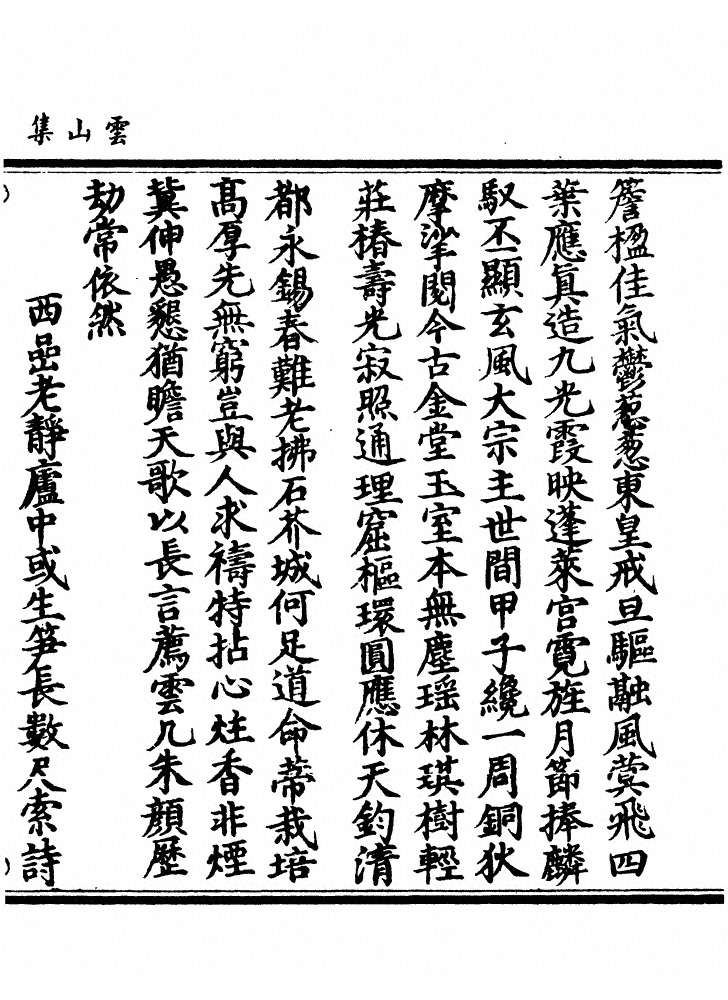 雲山集
簷楹佳氣鬱葱葱東皇戒旦驅融風蓂飛四
葉應真造九光霞映蓬萊宮霓旌月節捧麟
馭丕顯玄風大宗主世間甲子纔一周銅狄
摩挲閱今古金堂玉室本無塵瑶林琪樹輕
莊椿壽光寂照通理窟樞環圓應休天鈞清
都永錫春難老拂石芥城何足道命蒂栽培
高厚先無窮豈與人求禱特拈心炷香非煙
冀伸愚懇猶瞻天歌以長言薦雲几朱顔歷
劫常依然
西嵒老靜廬中或生笋長數尺索詩